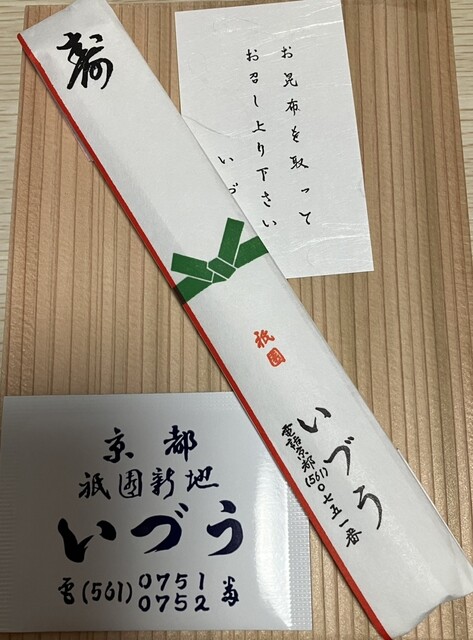 お昆布を取って
お召し上り下さい
いづ
寿
祇園
いづう
電話京都(561)〇七五一番
京都
祇園新地
いづう
電(561)0751
0752番